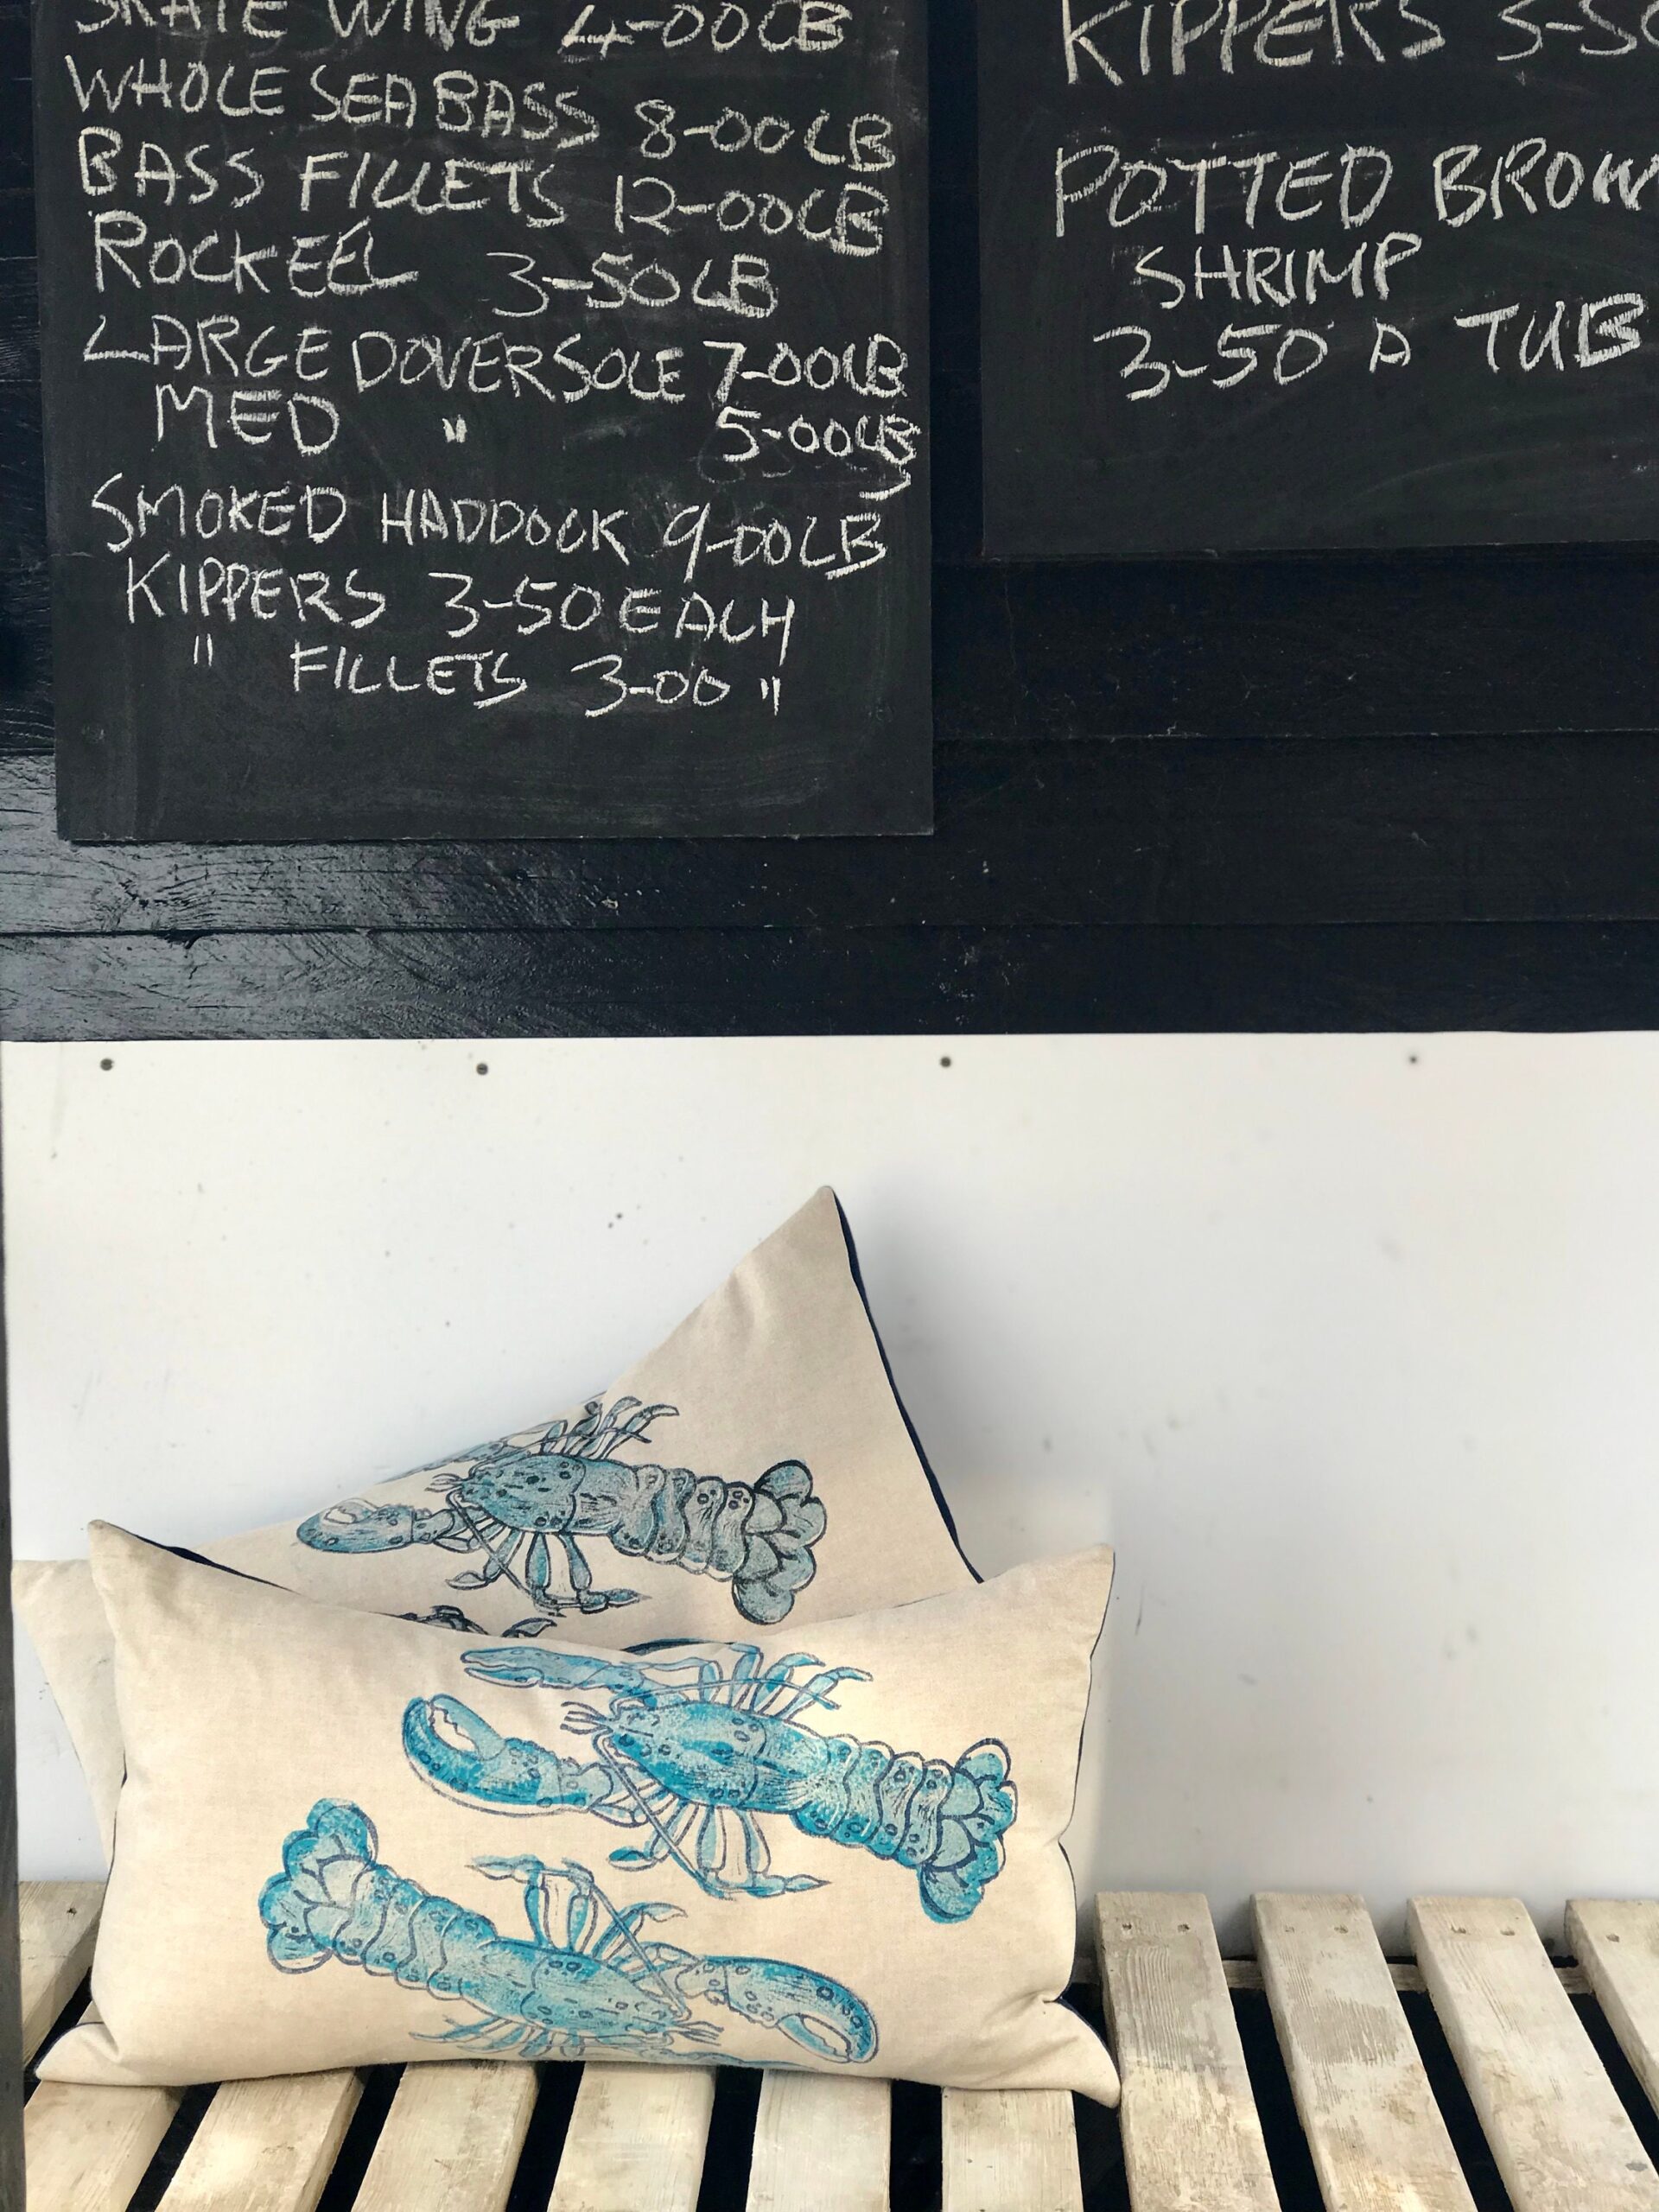 SKATE WING 4-00LB
WHOLE SEA BASS 8-00LB
BASS FILLETS 12-00LB
ROCK EEL 3-50LB
LARGE DOVER SOLE 7-00LB
MED " 5-00LB
SMOKED HADDOCK 9-00LB
KIPPERS 3-50 EACH
" FILLETS 3-00 "
KIPPERS 3-5
POTTED BROW
SHRIMP
3-50 A TUB